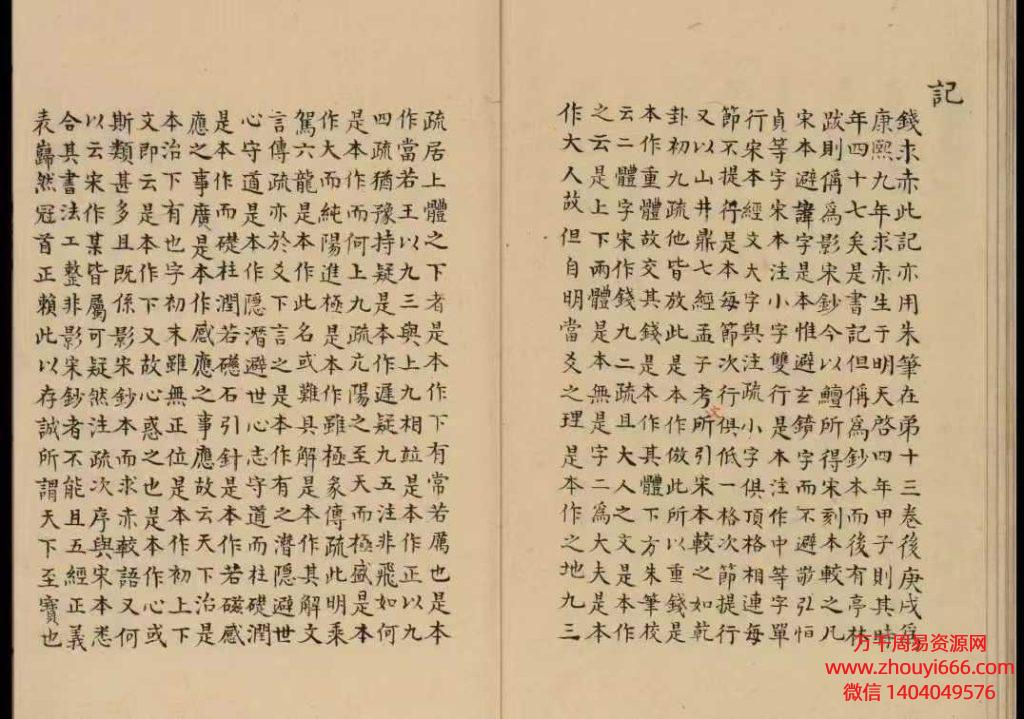 記
錢求赤此記亦用朱筆在弟十三卷後庚戌爲
康熙九年求赤生于明天啓四年甲子則其時
年四十七矣是書記但稱爲鈔本而後有亭林
跋則偁爲影宋鈔今以鱣所得宋刻本較之凡
宋本避諱字是本惟避玄鏡字而不避敬弘恒
貞等字宋本注小字雙行是本注作中等字單
行宋本經文大字與注疏小字俱頂格相連每
節不提行是本每節次行俱低一格次節提行
又以山井鼎七經孟子考文所引宋本較之如乾
卦初九疏他皆放此是本作倣此所以重錢是
本作重體故交其錢是本作其體下方朱筆校
云二體字宋作錢九二疏且大人之文是本作
之云是上下兩體是本無是字二爲大夫是本
作大人故但自明當爻之理是本作之地九三
疏居上體之下者是本作下有常若厲也是本
作當若王以九三與上九相竝是本作正以九
四疏猶豫持疑是本作遲疑九五注非飛如何
是本作而何上九疏亢陽之至天而極盛是本
作大而純陽進極是本作雖極象傳疏此明乘
駕六龍是本作此名或難具解是本作其解文
言傳疏亦於爻下言之是本作有之潛隱避世
心守道是本作隱潛避世心志守道而柱礎潤
是本作而礎柱潤若磁石引針是本作若磁感
應之事廣是本作感應之事應故云天下治是
本治下有也字初末雖無正位是本作初上下
文即云是本作下又故心惑之也是本作心或
斯類甚多且既係影宋鈔本而求赤較語又何
以云宋作某皆屬可疑然注疏次序與宋本悉
合其書法工整非影宋鈔者不能且五經正義
表巋然冠首正賴此以存誠所謂天下至寶也
万千周易资源网
www.zhouyi666.com
微信 1404049576